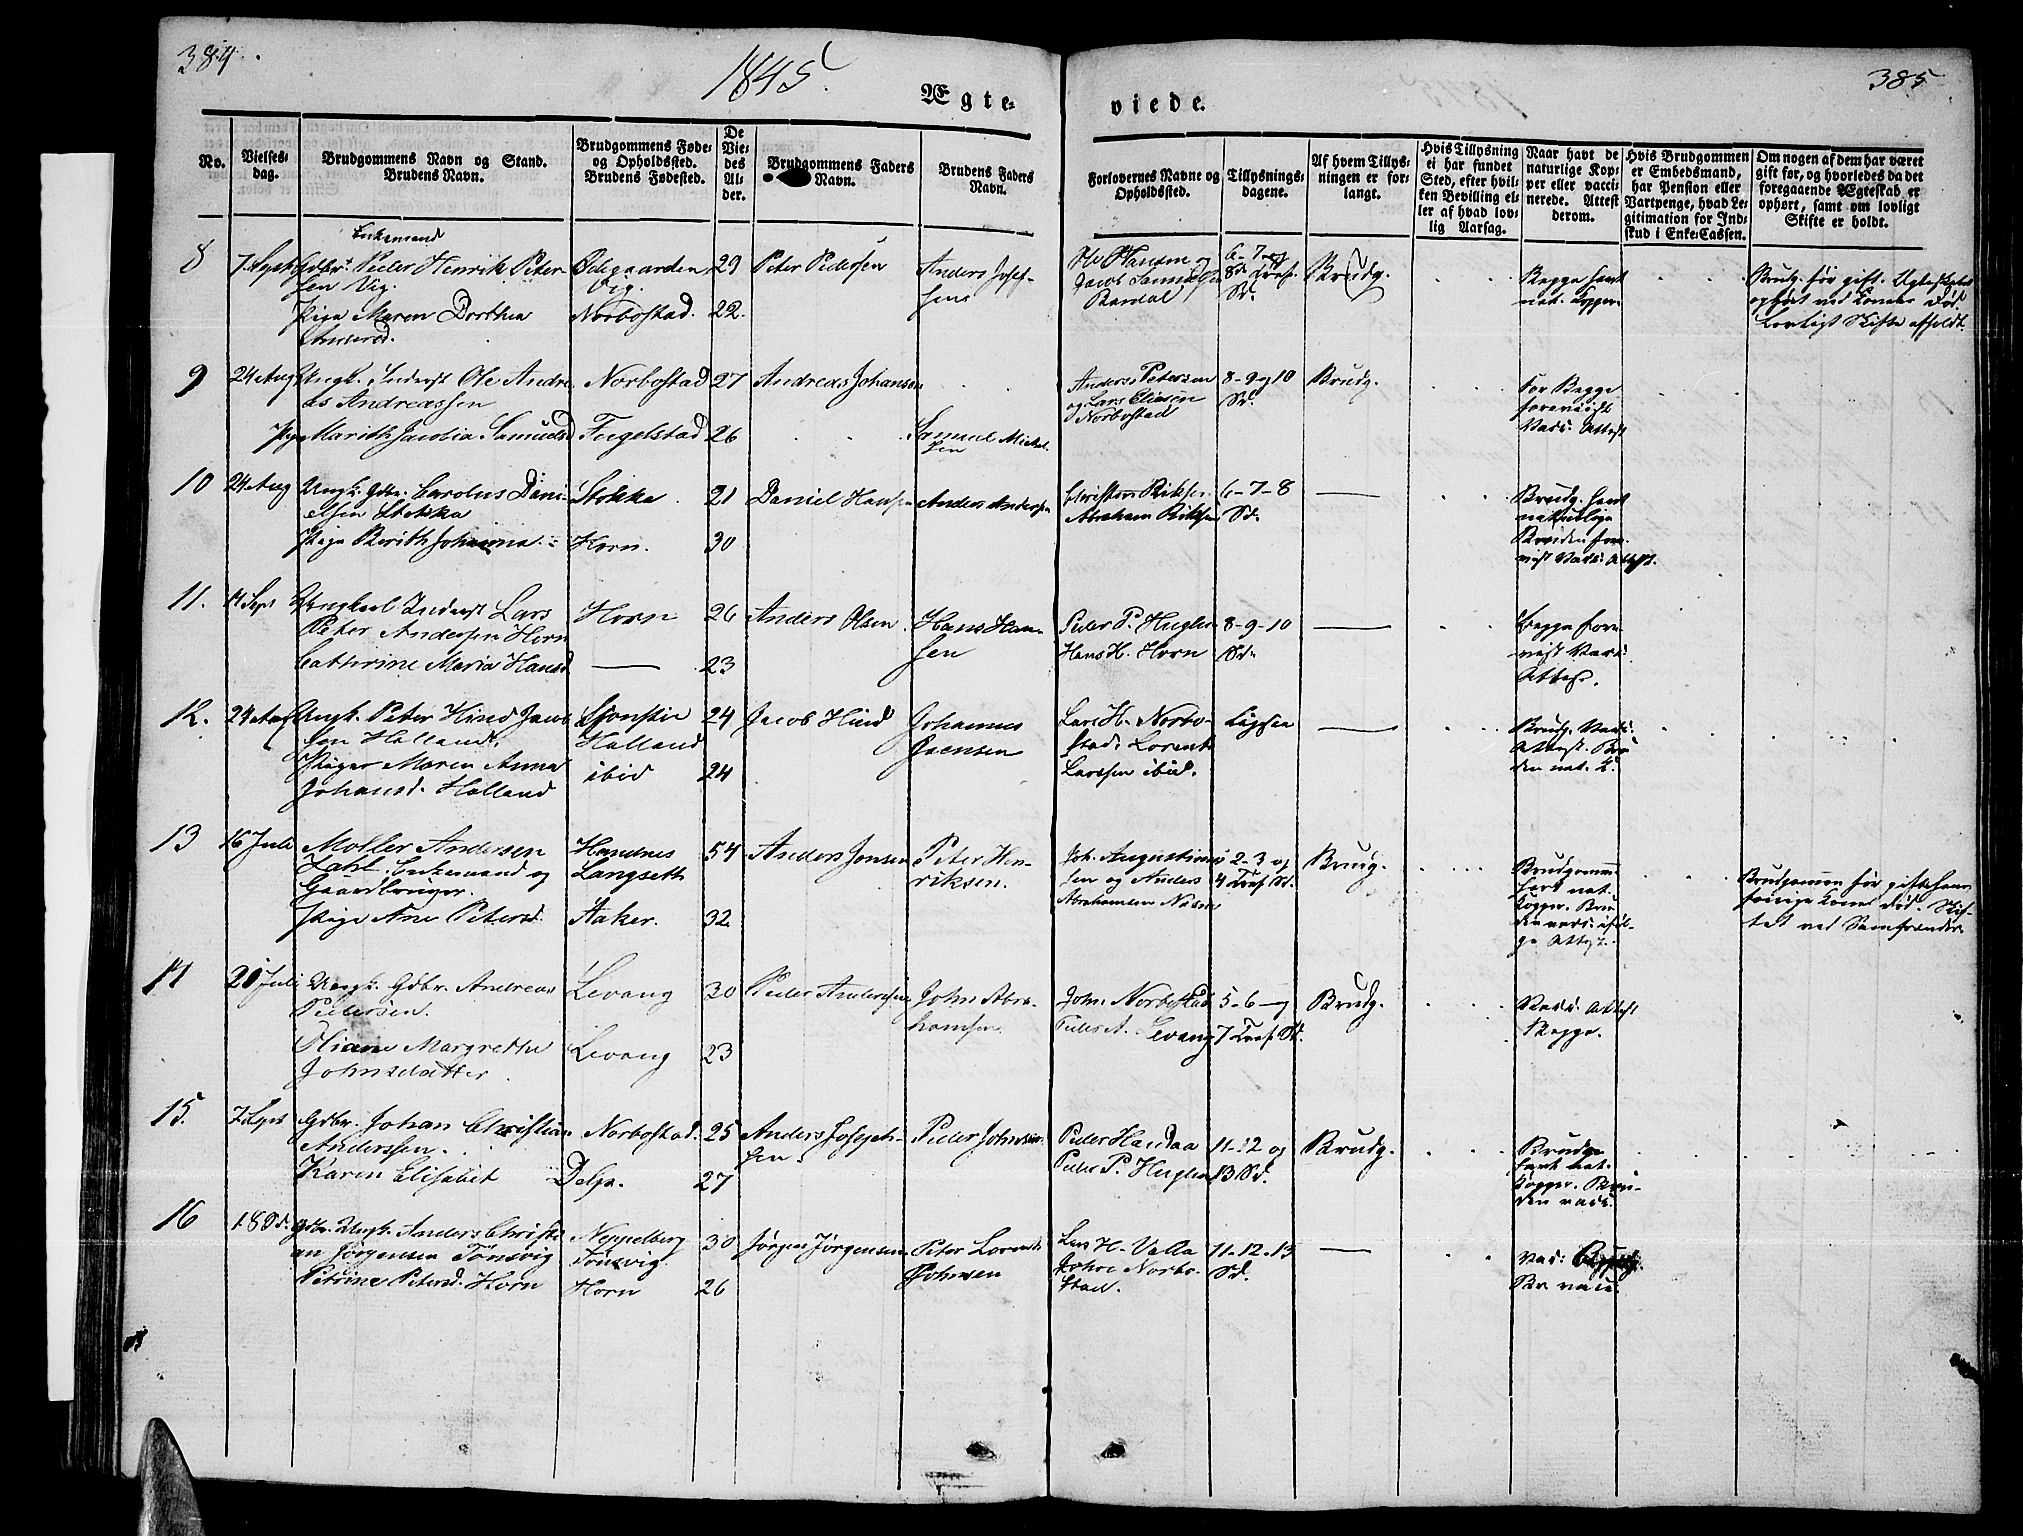 384.
1845.
385
Ægte-
viede.
No.
Vielses-
dag.
Brudgommens Navn og Stand.
Brudens Navn.
Brudgommens Føde-
og Opholdssted.
Brudens Fødested.
De
Vie-
des
Al-
der.
Brudgommens Faders
Navn.
Brudens Faders
Navn.
Forlovernes Navne og
Opholdssted.
Tillysnings-
dagene.
Af hvem Tillys-
ningen er for-
langt.
Hvis Tillysning
ei har fundet
Sted, efter hvil-
ken Bevilling el-
ler af hvad lov-
lig Aarsag.
Naar havt de
naturlige Kop-
per eller vacci-
nerede. Attest
derom.
Hvis Brudgommen
er Embedsmand,
har Pension eller
Vartpenge, hvad Le-
gitimation for Ind-
skud i Enke-Cassen.
Om nogen af dem har været
gift før, og hvorledes da det
foregaaende Ægteskab er
ophørt, samt om lovligt
Skifte er holdt.
8
7 Sept
Enkemand
Gdbr. Peder Henrik Peter-
sen Vig.
Pige Maren Dorthea
Andersd.
Ødegaarden
Vig.
Norbostad.
29
22.
Peter Pedersen
Anders Josef-
sen
Ole Hansen og
Jacob
Bardal
6-7 og
8 S. Tref.
Sd.
Brudg.
Begge havt
nat. Kopper
Brudg. før gift. Ægteskabet
ophørt ved Konens Død
Lovligt Skifte afholdt.
9
24 Aug
Ungk. Inderst Ole Andre-
as Andreassen
Pige Marith Jacobia Samuelsd
Norbostad
Fugelstad
27
26
Andreas Johansen
Samuel Mickel-
sen
Anders Petersen
og Lars Eliasen
Norbostad
8-9 og 10
Sd.
Brudg.
For Begge
foreviist
Vacc. Attest
10
24 Aug
Ungk. Gdbr. Carolus Dani-
elsen Stokka
Pige Berith Johanna
Stokka.
Horn.
21
30
Daniel Hansen
Anders Andersen
Abraham
6-7-8
Sd.
Brudg. havt
naturlige
Bruden fore-
vist Vacc. Attest.
11.
14 Sept
Ungkarl Inderst Lars
Peter Andersen Horn
Cathrine Maria Hansd
Horn
26
23
Anders Olsen
Hans Han-
sen
Peder P. Huglen
Hans H. Horn
8-9-10
Sd.
Begge fore-
vist Vacc.
Attest.
12.
24 Aug
Ungk. Peter Hind Jacob-
sen Halland.
Piger Maren Anna
Johansd. Halland
Halland
ibid
24
24
Jacob Hind
Johannes
Lars H. Norbo-
stad. Lorents
Larssen ibid.
Brudg. Vacc.
Attest. Bru-
den nat. K.
13
16 Juli
Møller Andersen
Zahl. Enkemand og
Gaardbruger.
Pige Ane Petersd.
Handnes
Langseth
Aaker.
54.
32
Anders Jonsen
Peter Hen-
riksen.
Joh. Augustinus-
sen og Anders
Abrahamsen
1 2-3 og
4 Tref. Sd.
Brudg.
Brudgomm
havt nat.
Kopper. Bru-
den vacc. iføl-
ge Attest.
Brudgommen før gift, hans
forrige Kones Død. Skif-
tet ved Samfrænder
14
20 Juli
Ungk. Gdbr. Andreas
Pedersen.
Oliane Margrethe
Johnsdatter
Levang
Levang
30
23
Peder Andersen
John Abra-
hamsen
John Norbostad
Peder A. Levang
5-6- og
7 Tref. Sd.
Brudg.
Vacc. Attest
Begge.
15.
7 Sept
Gdbr. Johan Christian
Anderssen.
Karen Elisabet
Norbostad.
25
27
Anders Joseph-
sen.
Peder Johnsen
Peder Handaa
Peder P. Huglen
11-12 og
13 Sd.
Brudg.
Brudg.
havt nat.
Kopper. Bru-
den vacc.
16
18 Oct.
Gdbr. Ungk. Anders Christi-
an Jørgensen Tønsvig
Petrine Petersd. Horn
Neppelberg
Tønsvig.
Horn
30
26
Jørgen Jørgensen
Peter Lorents
Johnsen
Lars H. Valla
Johan Norbo-
stad.
11-12-13
Sd.
Vacc.
Br. vacc.